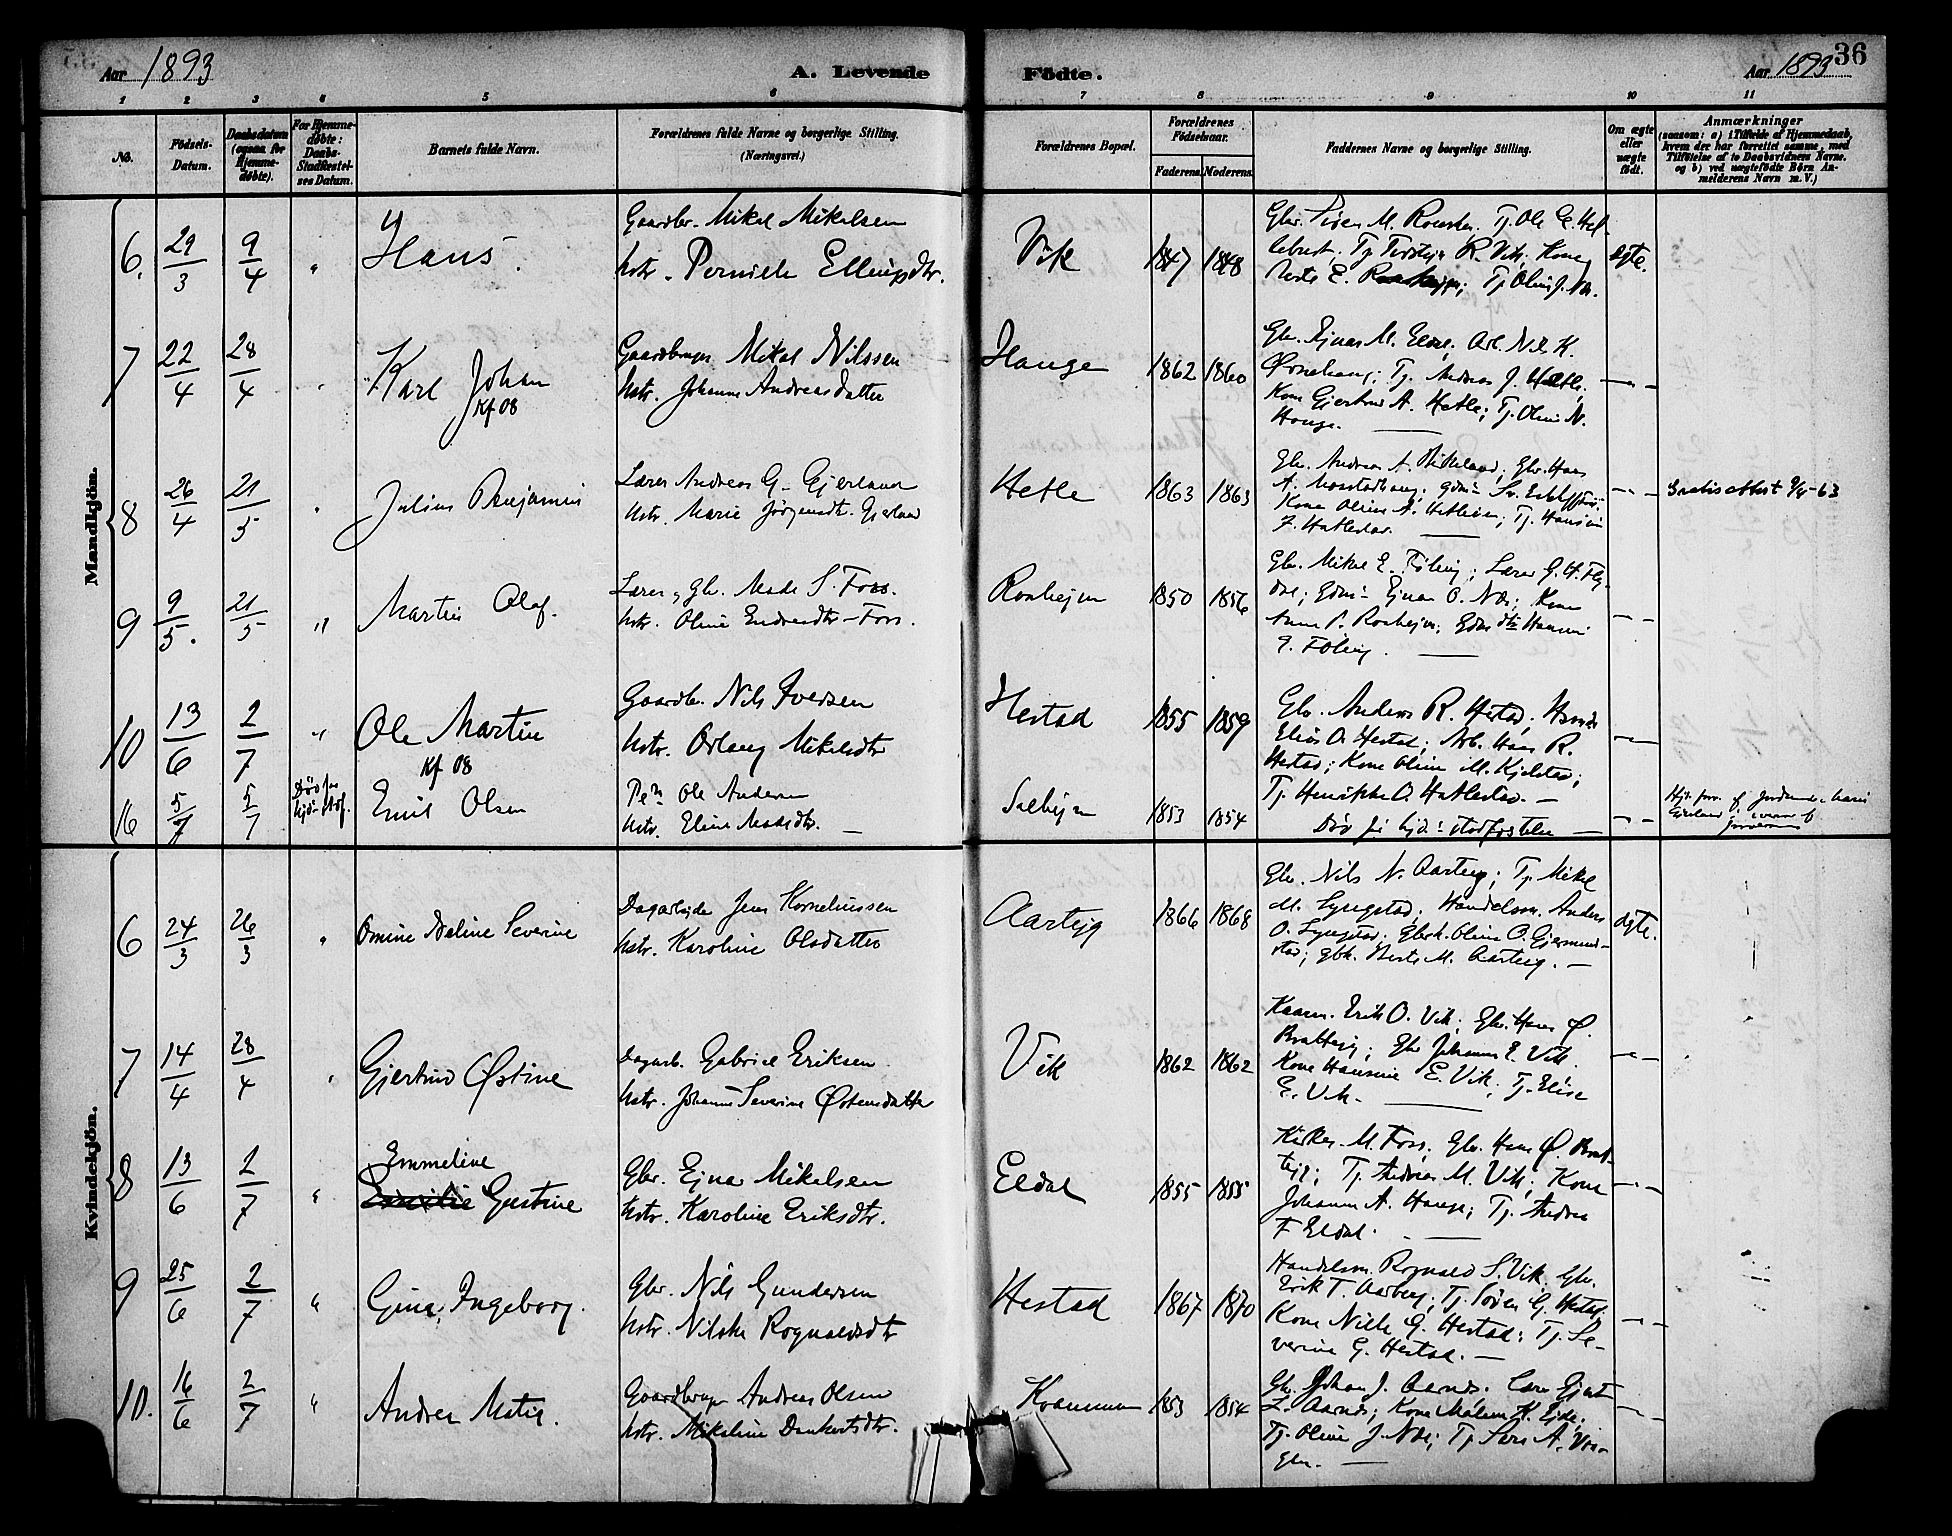 Aar 1893
A. Levende
Födte.
Aar 1893
36
1 2 3 4 5 6 7 8 9 10 11
No.
Födsels-
Datum.
Daabsdatum
(ogsaa for
Hjemme-
döbte).
For Hjemme-
döbte:
Daabs-
Stadfæstel-
ses Datum.
Barnets fulde Navn.
Forældrenes fulde Navne og borgerlige Stilling.
(Næringsvei.)
Forældrenes Bopæl.
Forældrenes
Födselsaar.
Faderens. Moderens.
Faddernes Navne og borgerlige Stilling.
Om ægte
eller
uægte
födt.
Anmærkninger
(saasom: a) i Tilfælde af Hjemmedaab,
hvem der har forrettet samme, med
Tilföielse af to Daabsvidners Navne,
og b) ved uægtefödte Börn An-
melderens Navn m.V.)
Mandkjön.
6. 29/3 9/4 " Hans.
Gaardbr. Mikal Mikalsen
Hstr. Pernille Ellingsdtr.
Vik 1847 1848
Gbr. Tj. Ole E. Hel-
lebust; Tj. R. Vik; Kone
Berte E. Tj. Oline J.
ægte.
7 22/4 28/4 " Karl Johan
Kf 08
Gaardbruger Mikal Nilssen
Hstr. Johanne Andreasdatter
Hauge 1862 1860
Gbr. Ejnar M. Eldal; Arb. Nils K.
Tj. Andreas J. Hetle;
Kone Gjertrud A. Hetle; Tj. Oline N.
Hauge. —
— " —
8 26/4 21/5 " Julius Benjamin
Lærer Andreas G. Gjerland
Hstr. Marie Jørgensdt. Gjerland
Hetle 1863 1863
Gbr. Andreas A. Birkeland; Gbr. Hans
A.
Kone Oline A. Tj. Hansine
F. Hatlestad. —
— " —
9 9/5. 21/5 " Martin Olaf.
Lærer, Gbr. Mads S. Foss.
Hstr. Oline Endresdtr. Foss.
Roshejm 1850 1856
Gbr. Mikal E. Føleng; Lærer G. H. Fly-
Ejnar O. Kone
Anne P. Roshejm; Hansine
E. Føleng. —
— " —
10 13/6 2/7 " Ole Martin
Kf 08
Gaardb. Nils Iversen
Hstr. Orlaug Mikalsdtr
Hestad 1855 1859
Gbr. Anders R. Hestad;
Elias O. Hestad; Arb. Hans R.
Hestad; Kone Oline M. Kjelstad;
Tj. Henrikke O. Hatlestad. —
— " —
16 5/7 5/7 Død før
Emil Olsen
Ole Andersen
Hstr. Eline Madsdtr. —
Solhejm 1853 1854
Død før
— " —
Kvindekjön.
6 24/3 26/3 " Omine Naline Severine
Dagarbejder Jens Korneliussen
Hstr. Karoline Olsdatter
Aartejg 1866 1868
Gbr. Nils N. Aartejg; Tj. Mikal
M. Lyngstad; Handelsm. Anders
O. Lyngstad; Oline O. Gjermund-
stad; Gbk. Berte M. Aartejg. —
ægte.
7 14/4 28/4 " Gjertrud Østine
Dagarb. Gabriel Eriksen
Hstr. Johanne Severine Østensdatter
Vik 1862 1862
Kaarm. Erik O. Vik; Gbr. Hans Ø.
Brattejg; Gbr. Johannes E. Vik
Kone Hansine E. Vik; Tj. Elise
E. Vik. —
— " —
8 13/6 2/7 " Emmeline
Gustine
Gbr. Ejnar Mikalsen
Hstr. Karoline Eriksdtr.
Eldal 1855 1855
M. Foss; Gbr. Hans Ø. Brat-
tejg; Tj. Andreas M. Vik; Kone
Johanne A. Hauge; Tj. Andrea
F. Eldal. —
— " —
9 25/6 2/7 " Gina Ingeborg.
Gbr. Nils Gundersen
Hstr. Nilska Rognaldsdtr
Hestad 1867 1870
Handelsm. Rognald S. Vik. Gbr.
Erik T. Aarberg; Tj. Søren G. Hestad;
Kone Nille G. Hestad; Tj. Se-
verine G. Hestad. —
— " —
10. 16/6 2/7 " Andrea Matie.
Gaardbruger Andreas Olsen
Hstr. Mikeline Dankertsdtr.
Kvammen 1853 1854
Gbr. Johan J. Aarnes.
L. Aarnes; Kone Malene K. Ejde;
Tj. Oline J. Tj. Sara A.
— " —